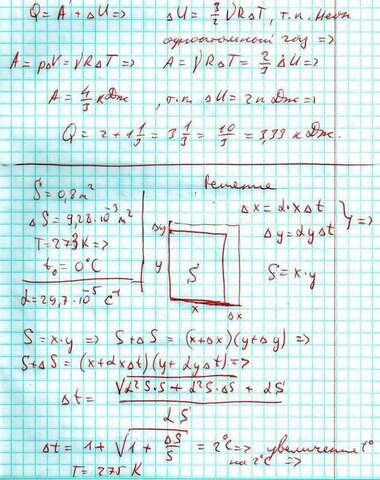 Q = A + ΔU => ΔU = 3/2 νRΔT, т.к. Неон
одноатомный газ =>
A = pΔV = νRΔT => A = νRΔT = 2/3 ΔU =>
A = 4/3 кДж, т.к. ΔU = 2кДж =>
Q = 2 + 1 1/3 = 3 1/3 = 10/3 = 3,33 кДж.
Решение
S = 0,8 м²
ΔS = 9,28·10⁻³ м²
T = 273 К =>
t₀ = 0°C
α = 29,7·10⁻⁵ C⁻¹
Δy
y
S
x
Δx
Δx = α·xΔt
Δy = αyΔt
} =>
S = x·y
S = x·y => S + ΔS = (x+Δx)(y+Δy) =>
S+ΔS = (x+αxΔt)(y+αyΔt) =>
Δt = (√(α²S·S + α²S·ΔS) + αS) / αS
Δt = 1 + √(1 + ΔS/S) = 2°C => увеличение t°
на 2°C =>
T = 275 К